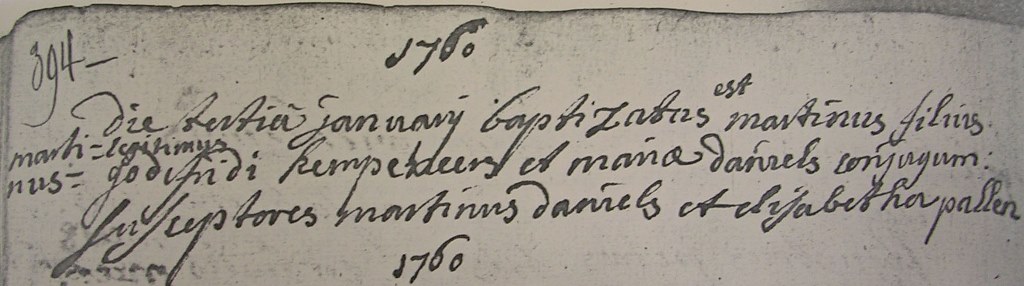 394-
1760
Die tertiâ januarij baptizatus est martinus filius
marti= legitimus
nus= godefridi kempeneers et mariæ daniels conjugum:
susceptores martinus daniels et elisabetha pallen
1760